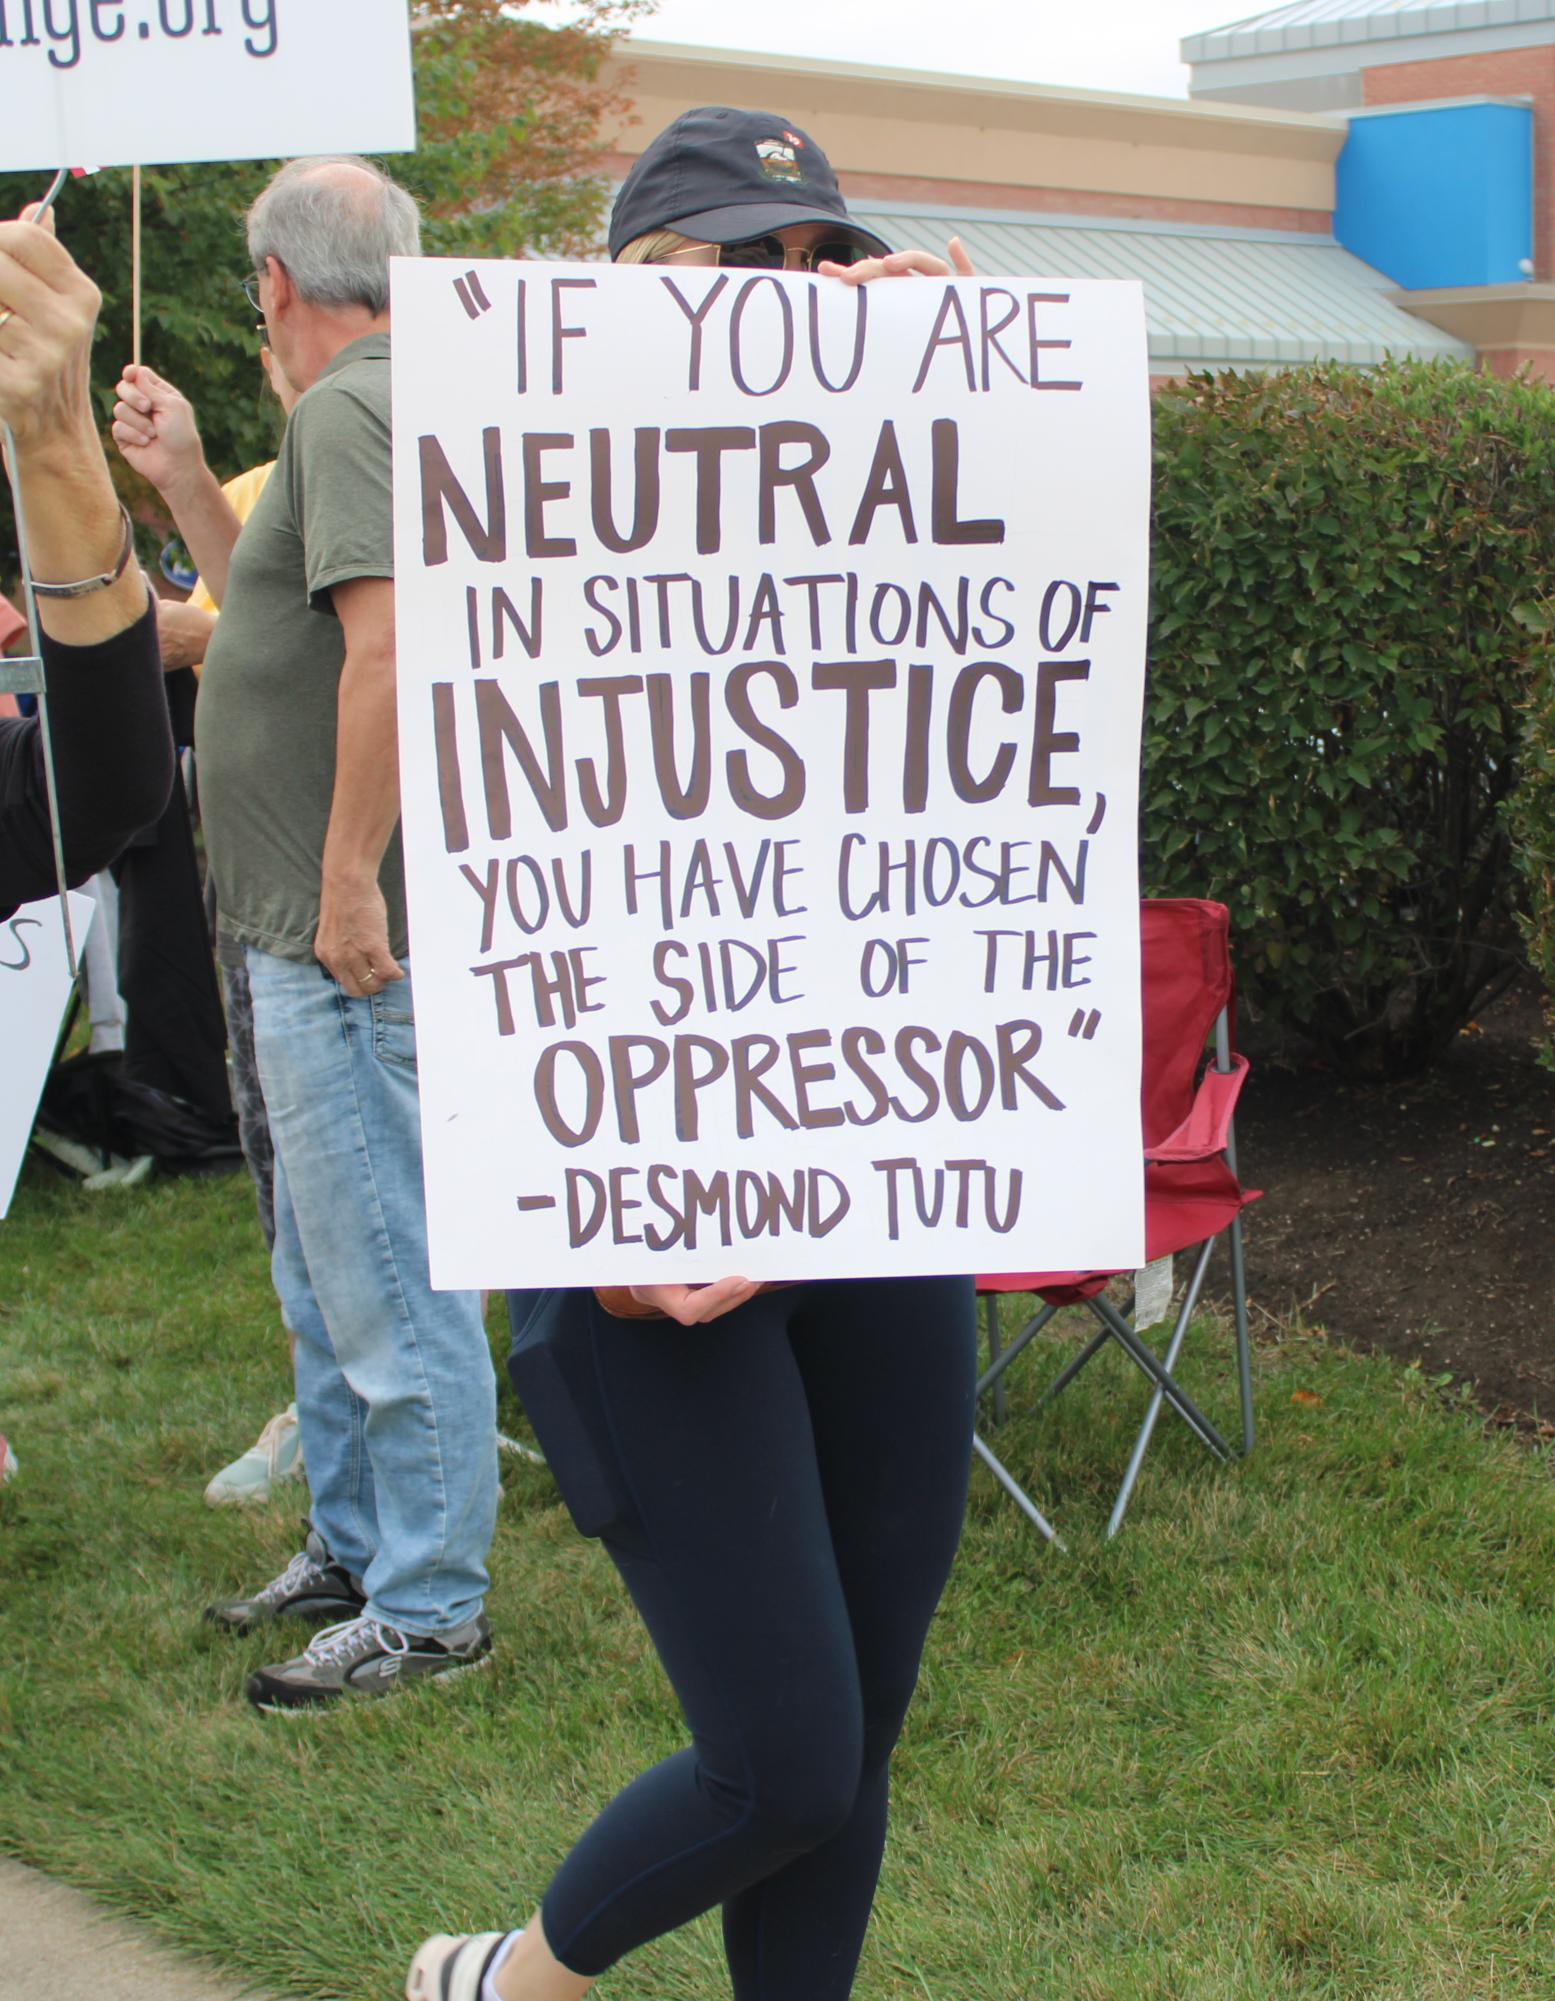 nge.org
"IF YOU ARE
NEUTRAL
IN SITUATIONS OF
INJUSTICE,
YOU HAVE CHOSEN
THE SIDE OF THE
OPPRESSOR"
-DESMOND TUTU
S